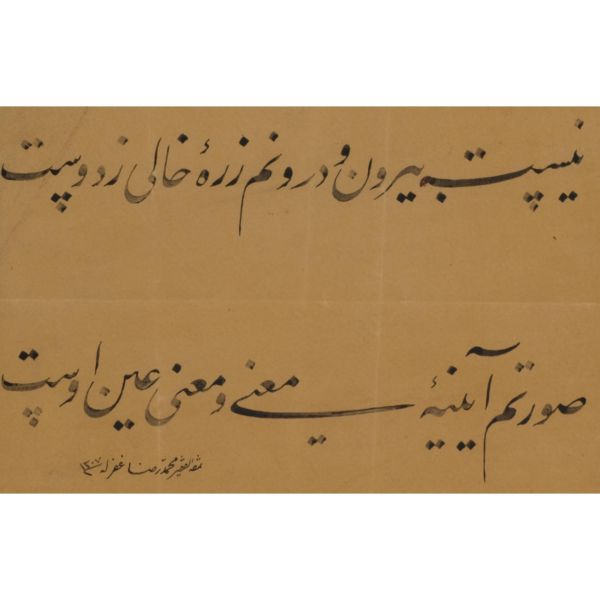 نیست بیرون و درونم زرهٔ خالی ز دوست
صورتم آیینهٔ معنی و معنی عین اوست
الفقیر محمدرضا غفرله ۱۳۰۷